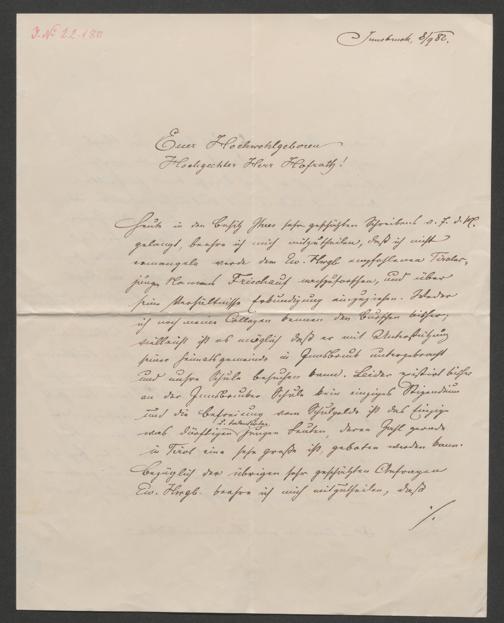 J. N. 22.180
Innsbruck, 8/9 82.
Euer Hochwohlgeboren
Hochgeehrter Herr Hofrath!
Heute in den Besitz Ihres sehr geschätzten Schreibens v. 7. d. M.
gelangt, beehre ich mich mitzutheilen, daß ich nicht
ermangeln werde dem Ew. Hwgb. empfohlenen Tiroler,
jungen Namens Frischauf nachzuforschen, und über
seine Verhältnisse Erkundigung einzuziehen. Weder
ich noch meine Collegen kennen den Burschen bisher,
vielleicht ist es möglich daß er mit Unterstützung
seiner Heimatsgemeinde in Innsbruck untergebracht
und unsere Schule besuchen kann. Leider existirt bisher
an der Innsbrucker Schule kein einziges Stipendium
und die Befreiung vom Schulgelde ist das Einzige
was dürftigen u. talentirten jungen Leuten, deren Zahl gerade
in Tirol eine sehr große ist, geboten werden kann.
Bezüglich der übrigen sehr geschätzten Anfragen
Ew. Hwgb. beehre ich mich mitzutheilen, daß
./.